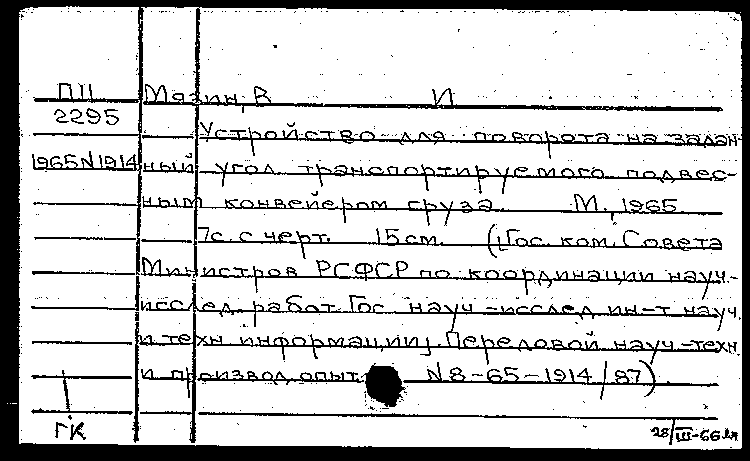 П11 Мазин, В И
2295
Устройство для поворота на задан-
1965 N 1914 ный угол транспортируемого подвес-
ным конвейером груза М., 1965
7с. с черт. 15 см. (Гос. ком. Совета
Министров РСФСР по координации науч.-
исслед. работ. Гос. науч.-исслед. ин-т науч.
и техн информации). Передовой науч.-техн
и производ. опыт. N 8-65-1914/87)
ГК
28/III-66